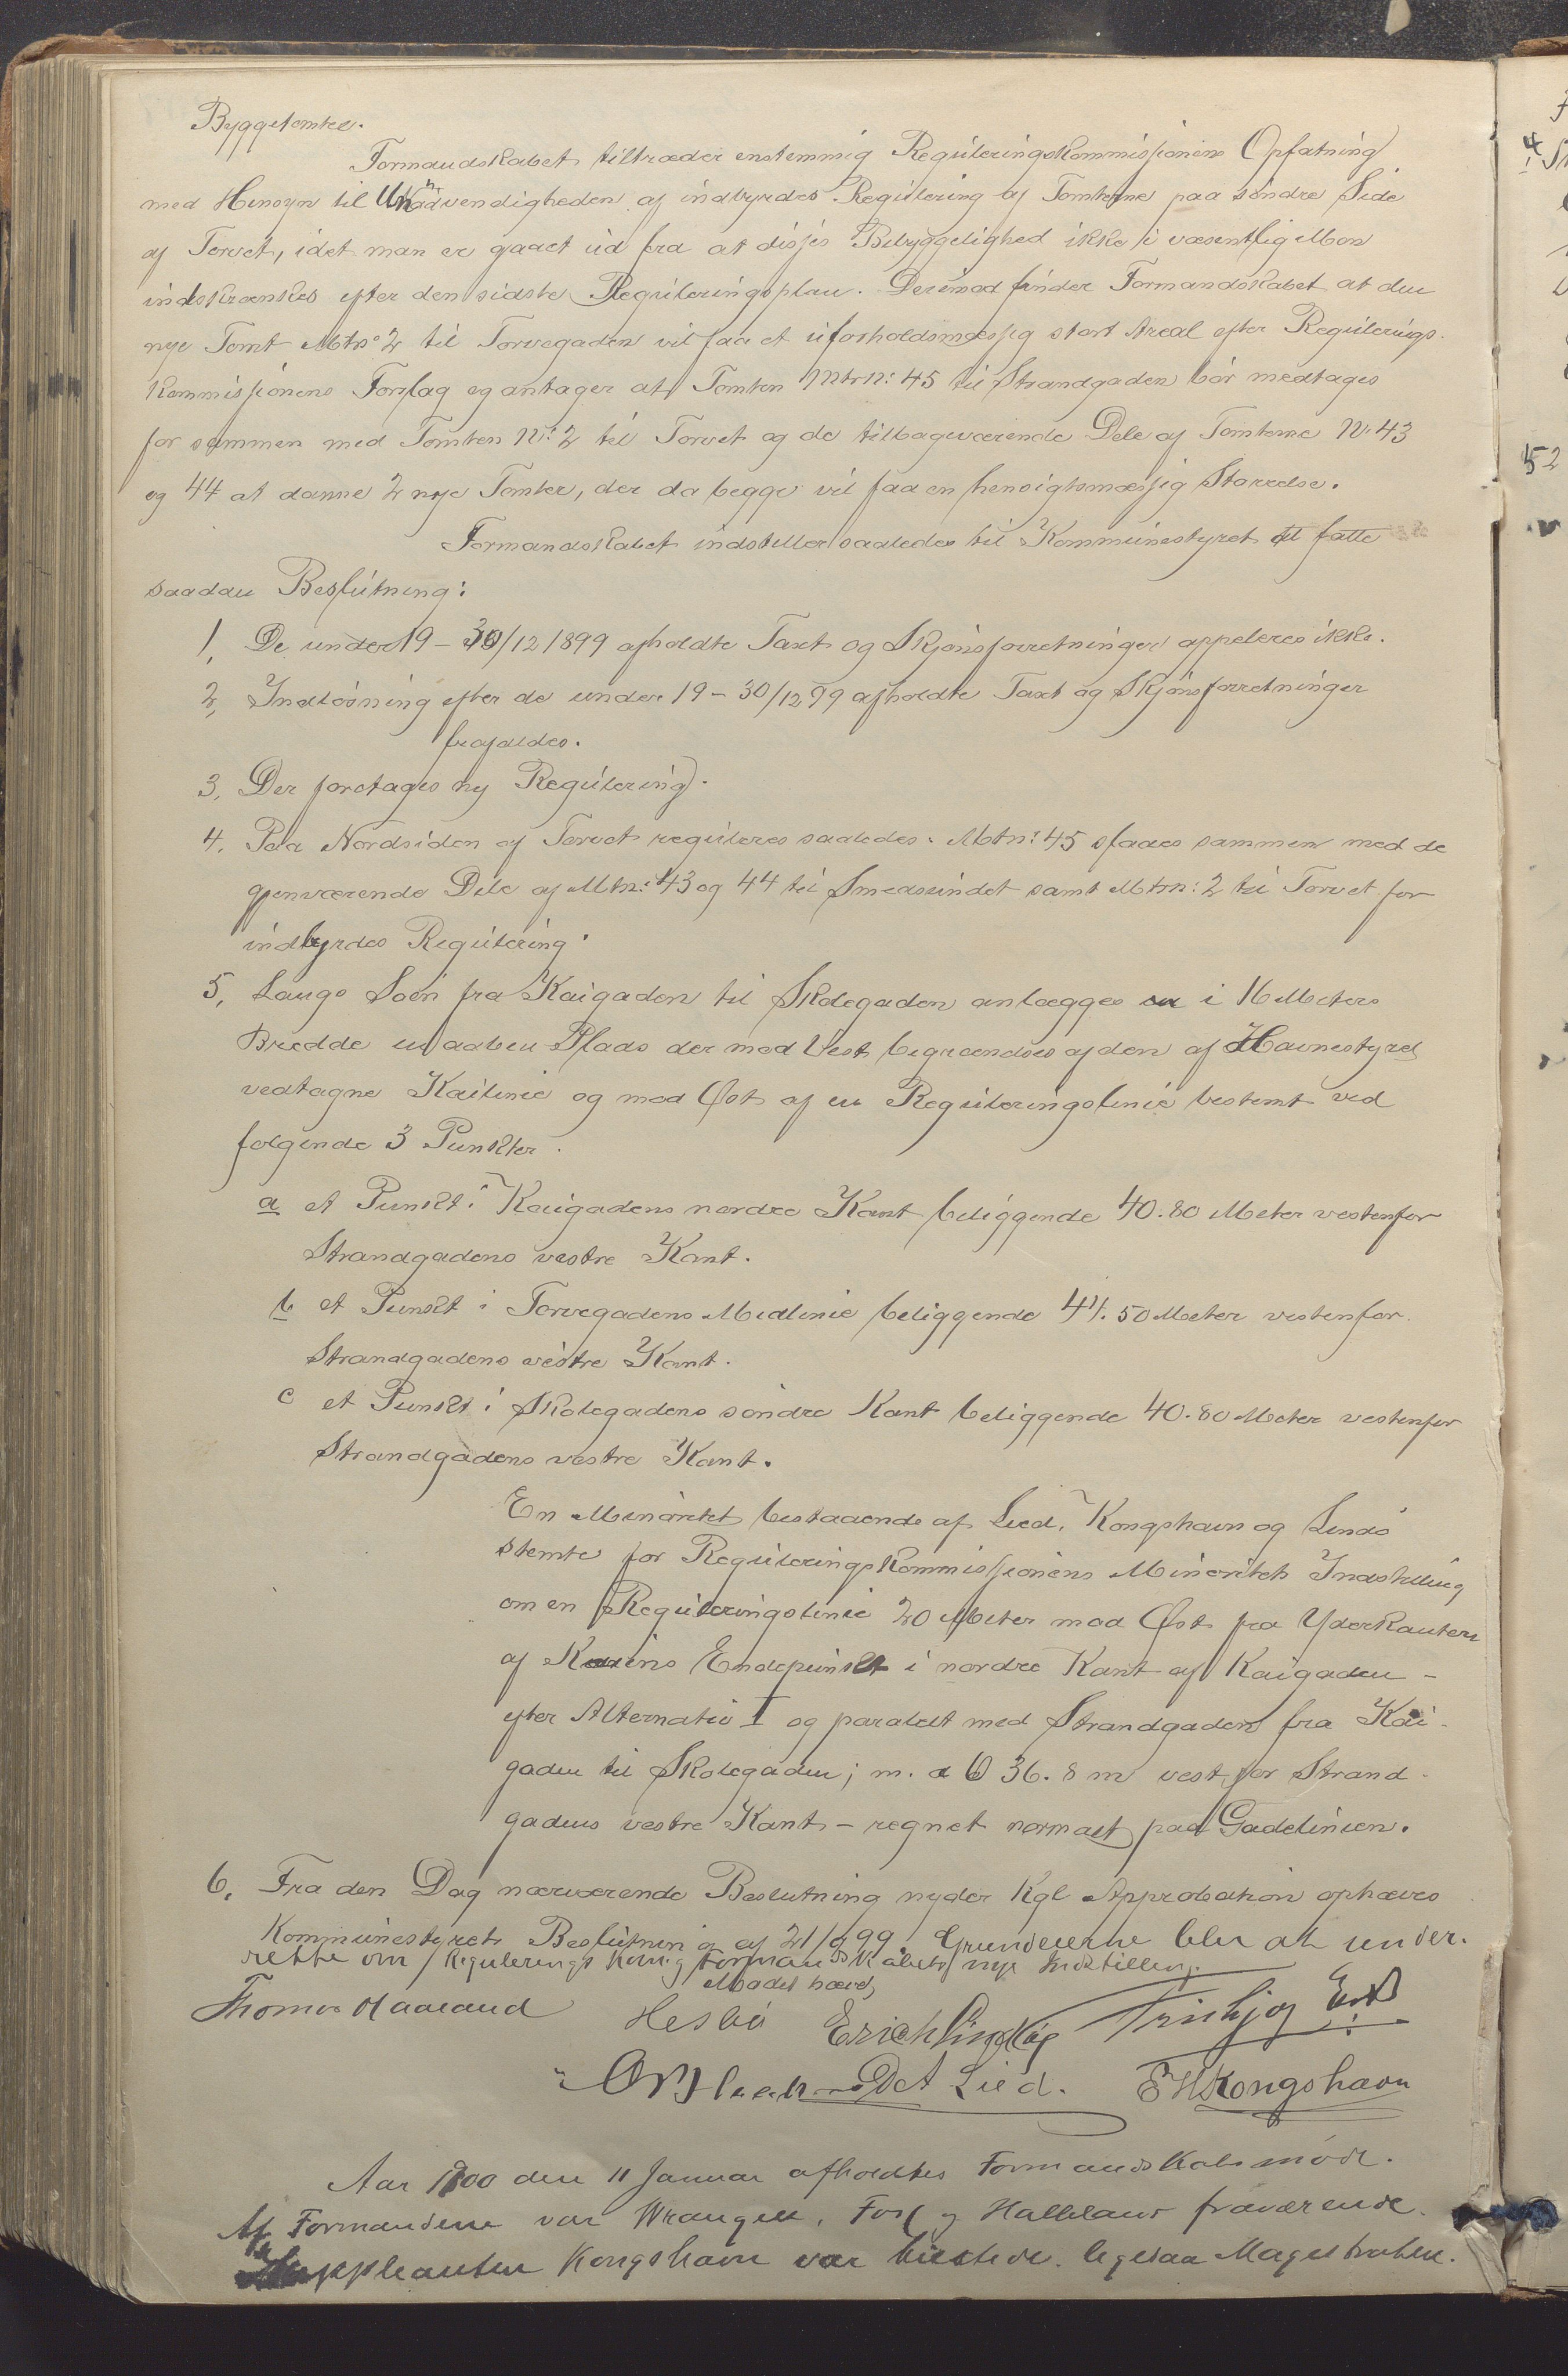 Byggetomter.
Formandskabet tiltræder enstemmig Reguleringskommissionens Opfatning
med Hensyn til Unødvendigheden af indbyrdes Regulering af Tomterne paa søndre Side
af Torvet, idet man er gaaet ud fra at disses Bebyggelighed ikke i væsentlig Mon
indskrænkes efter den sidste Reguleringsplan. Derimod finder Formandskabet at den
nye Tomt Mtrno 2 til Torvegaden vil faa et uforholdsmæssig stort Areal efter Regulerings-
kommissionens Forslag og antager at Tomten Mtrn: 45 til Strandgaden bør medtages
for sammen med Tomten N: 2 til Torvet og de tilbageværende Dele af Tomterne N. 43
og 44 at danne 2 nye Tomter, der da begge vil faa en hensigtsmæssig Størrelse.
Formandskabet indstiller saaledes til Kommunestyret at fatte
saadan Beslutning:
1, De under 19 - 30/12 1899 afholdte Taxt og Skjønsforretninger appeleres ikke.
2, Indløsning efter de under 19 - 30/12 99 afholdte Taxt og Skjønsforretninger
frafaldes.
3, Der foretages ny Regulering.
4, Paa Nordsiden af Torvet reguleres saaledes: Mtrn: 45 slaaes sammen med de
gjenværende Dele af Mtrn: 43 og 44 til Smedsundet samt Mtrn: 2 til Torvet for
indbyrdes Regulering.
5, Langs Søen fra Kaigaden til Skolegaden anlægges i 16 Meters
Bredde en aaben Plads der mod Vest begrændses af den af Havnestyret
vedtagne Kailinie og mod Øst af en Reguleringslinie bestemt ved
følgende 3 Punkter.
a et Punkt i Kaigadens nordre Kant beliggende 40.80 Meter vestenfor
Strandgadens vestre Kant.
b et Punkt i Torvegadens Midlinie beliggende 41.50 Meter vestenfor
Strandgadens vestre Kant.
c et Punkt i Skolegadens søndre Kant beliggende 40.80 Meter vestenfor
Strandgadens vestre Kant.
En Minoritet bestaaende af Lied, Kongshavn og Lindø
stemte for Reguleringskommissionens Minoritets Indstilling
om en Reguleringslinie 20 Meter mod Øst fra Yderkanten
af Kaiens Endepunkt i nordre Kant af Kaigaden -
efter Alternativ I og paralelt med Strandgaden fra Kai-
gaden til Skolegaden; m. a O 36.8 m vest for Strand-
gadens vestre Kant - regnet normalt paa Gadelinien.
6, Fra den Dag nærværende Beslutning nyder Kgl Approbation ophæves
Kommunestyrets Beslutning af 21/9 99. Grundeierne blir at under-
rette om Regulerings Kom. og Formandskabets nye Indstilling.
Mødet hævet,
Thomas Haaland Hesbø Erich Lindøe
Det Lied. E H Kongshavn
Aar 1900 den 11 Januar afholdtes Formandskabsmøde.
Af Formændene var Wrangell, Foss og Halleland fraværende.
Suppleanten Kongshavn var tilstede. ligesaa Magistraten.